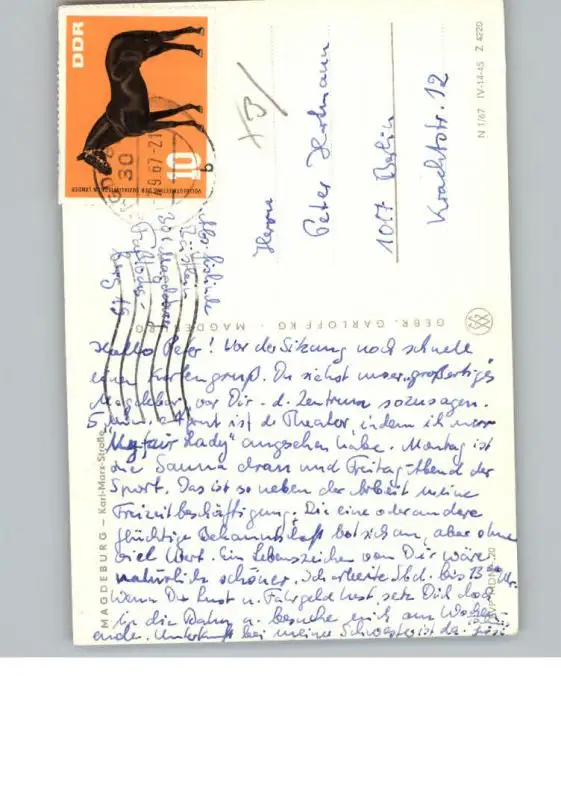 DDR
10
VOLLBLUTMEETING DER SOZIALISTISCHEN LÄNDER
30
9.67-21
b
+3/
Herrn
Peter
1017 Berlin
Krachtstr. 12
N 1/67 IV-14-45 Z 4220
GEBR. GARLOFF KG · MAGDEBURG
MAGDEBURG – Karl-Marx-Straße
301 Magdeburg
Hallo Peter! Vor der Sitzung noch schnell
einen Kartengruß. Du siehst unser „großertiges
Magdeburg vor Dir - d. Zentrum sozusagen.
5 Min. entfernt ist das Theater, in dem ich
"My fair Lady" angesehen habe. Montag ist
die Sauna dran und Freitag-Abend der
Sport. Das ist so neben der Arbeit meine
Freizeitbeschäftigung. Die eine oder andere
flüchtige Bekanntschaft bot sich an, aber ohne
viel Wert. Ein Lebenszeichen von Dir wäre
natürlich schöner. Ich arbeite bis Uhr.
Wenn Du Lust u. Fahrgeld hast, setz Dich doch
in die Bahn u. besuche mich am Wochen-
ende. Unterkunft bei meiner Schwester ist da.